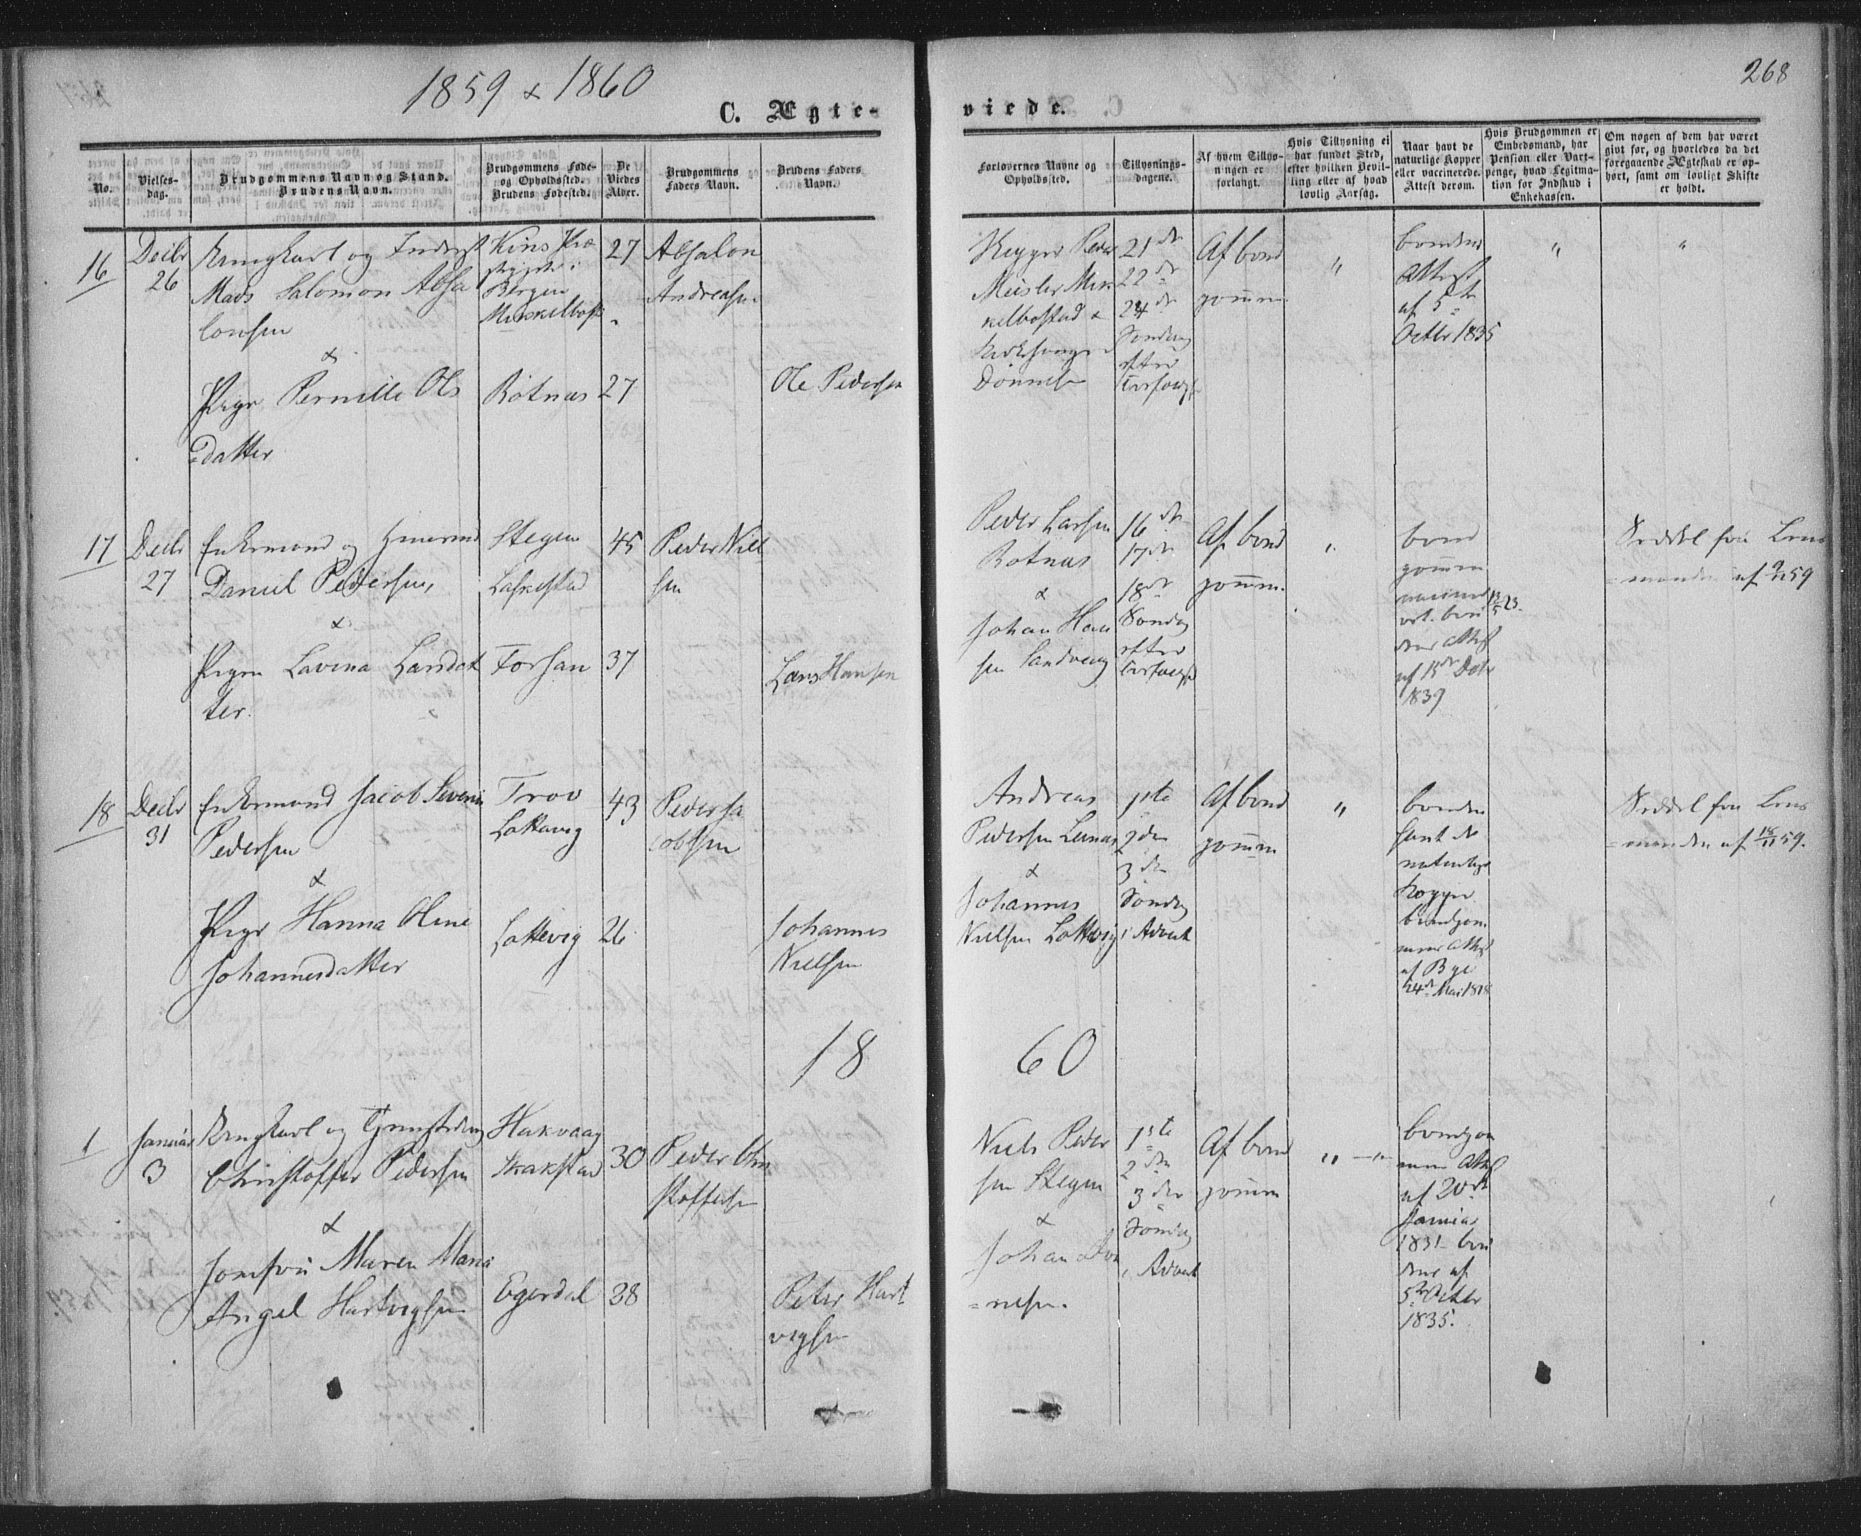 1859 & 1860
268
C. Ægte-
viede.
No.
Vielses-
dag.
Brudgommens Navn og Stand.
Brudens Navn.
Brudgommens Føde-
og Opholdssted.
Brudens Fødested.
De
Viedes
Alder.
Brudgommens
Faders Navn.
Brudens Faders
Navn.
Forlovernes Navne og
Opholdssted.
Tillysnings-
dagene.
Af hvem Tillys-
ningen er
forlangt.
Hvis Tillysning ei
har fundet Sted,
efter hvilken Bevil-
ling eller af hvad
lovlig Aarsag.
Naar havt de
naturlige Kopper
eller vaccinerede.
Attest derom.
Hvis Brudgommen er
Embedsmand, har
Pension eller Vart-
penge, hvad Legitima-
tion for Indskud i
Enkekassen.
Om nogen af dem har været
givt før, og hvorledes da det
foregaaende Ægteskab er op-
hørt, samt om lovligt Skifte
er holdt.
16
Decbr
26
Ungkarl og
Mads Salomon Absa
lonsen
&
Pige Pernille Ols
datter
Bergen
Røtnæs
27
27
Absalon
Andreasen
Ole Pedersen
21de
22de
24de
Søndag
efter
Af brud
gommen
"
Attest
af 5te
Octbr 1835
"
"
17
Decbr
27
Enkemand og
Daniel Pedersen,
&
Pigen Lavina Larsdat
ter.
Stegen
Laskestad
Forsan
45
37
Peder Niel
sen
Lars Hansen
Peder Larsen
Rotnæs
&
Johan Han
sen Sandvaag
16de
17de
18de
Søndag
efter
Af brud
gommen.
"
brud
gommen
af 15de Octbr
1839
Seddel fra Lens
manden af 9/11 59
18
Decbr
31
Enkemand Jacob Severin
Pedersen
&
Pige Hanna Oline
Johannesdatter
Lottevig
Lottevig
43
26
Peder Ja
cobsen
Johannes
Nielsen
Andreas
Pedersen Leinæs
&
Johannes
Nielsen Lottevig
1ste
2den
3die
Søndag
i Advent
Af brud
gommen
"
bruden
havt de
naturlige
Kopper
brudgom
mens Attest
24de Mai 1818
Seddel fra Lens
manden af 18/11 59.
18
60
1
Januar
3
Ungkarl og
Christoffer Pedersen
&
Jomfru Maren Maria
Angel Hartvigsen
Skakstad
Egerdal
30
38
Peder Chri
stoffersen
Peter Hart
vigsen
Niels Peder
sen Stegen
&
Johan
1ste
2den
3die
Søndag
i Advent
Af brud
gommen
" — "
brudgom
mens Attest
af 20de
Januar
1831 bru
dens af
5te Octbr
1835.